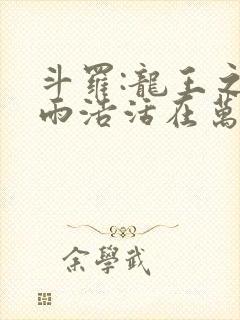 斗羅:龍王之
雨浩活在萬
余學武